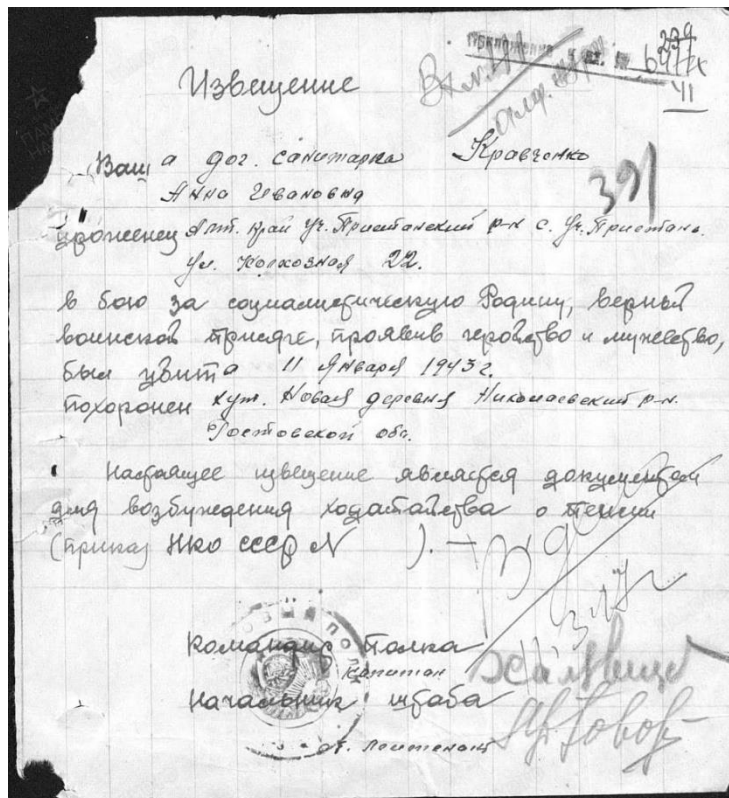 Извещение
Ваша дог. санитарка Кравченко
Анна Ивановна
391
уроженец Алт. край Уч. Пристанский р-н с. Уч. Пристань
ул. Колхозная 22.
в бою за социалистическую Родину, верный
воинской присяге, проявив геройство и мужество,
был убита 11 Января 1943 г.
похоронен хут. Новая деревня Николаевский р-н.
Ростовской обл.
Настоящее извещение является документом
для возбуждения ходатайства о пенсии
(приказ НКО СССР № ). —
Командир полка
капитан
Начальник штаба
ст. лейтенант